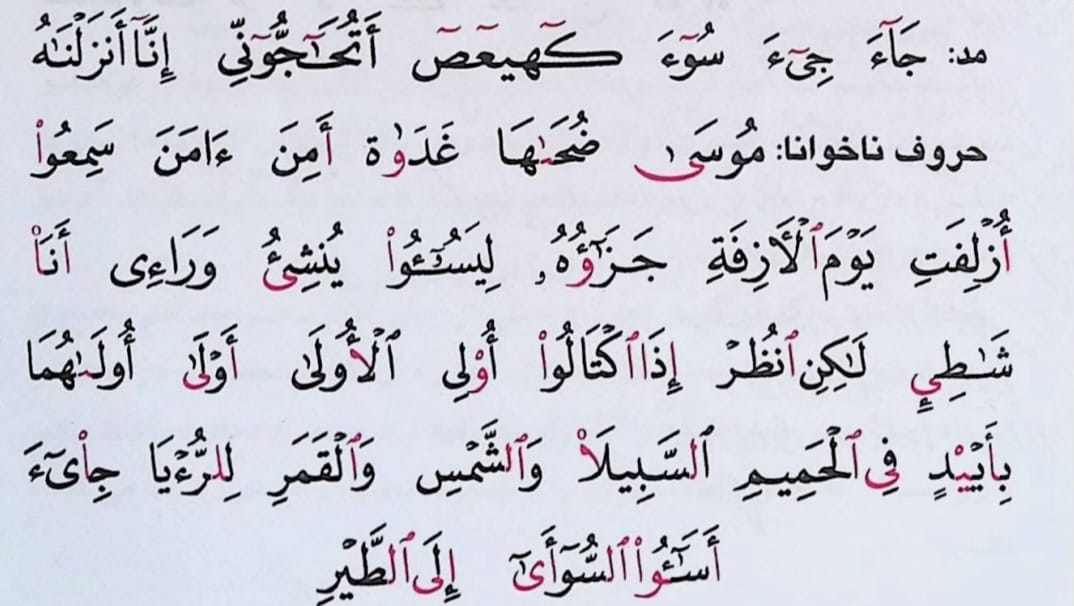 مد: جَآءَ جِیٓءَ سُوٓءَ كٓهيعٓصٓ أَتُحَآجُّوٓنِّی إِنَّآ أَنزَلْنَـٰهُ
حروف ناخوانا: مُوسَىٰ ضُحَىٰهَا غَدَوٰة أَمِنَ ءَامَنَ سَمِعُواْ
أُزْلِفَتِ يَوْمَ ٱلْأَزِفَةِ جَزَٰٓؤُهُۥ لِيَسُـۥٓـُٔواْ يُنشِئُ وَرَاءِی أَنَا۠
شَـٰطِیِٕ لَـٰكِنِ ٱنظُرْ إِذَا ٱكْتَالُواْ أُوْلِی ٱلْأُولَىٰ أَوْلَىٰ أُولَىٰهُمَا
بِأَيْيْدٍ فِی ٱلْحَمِيمِ ٱلسَّبِيلَا۠ وَٱلشَّمْسِ وَٱلْقَمَرِ لِلرُّءْيَا جِاْیٓءَ
أَسَـٰٓـُٔواْ ٱلسُّوٓأَىٰٓ إِلَى ٱلطَّيْرِ